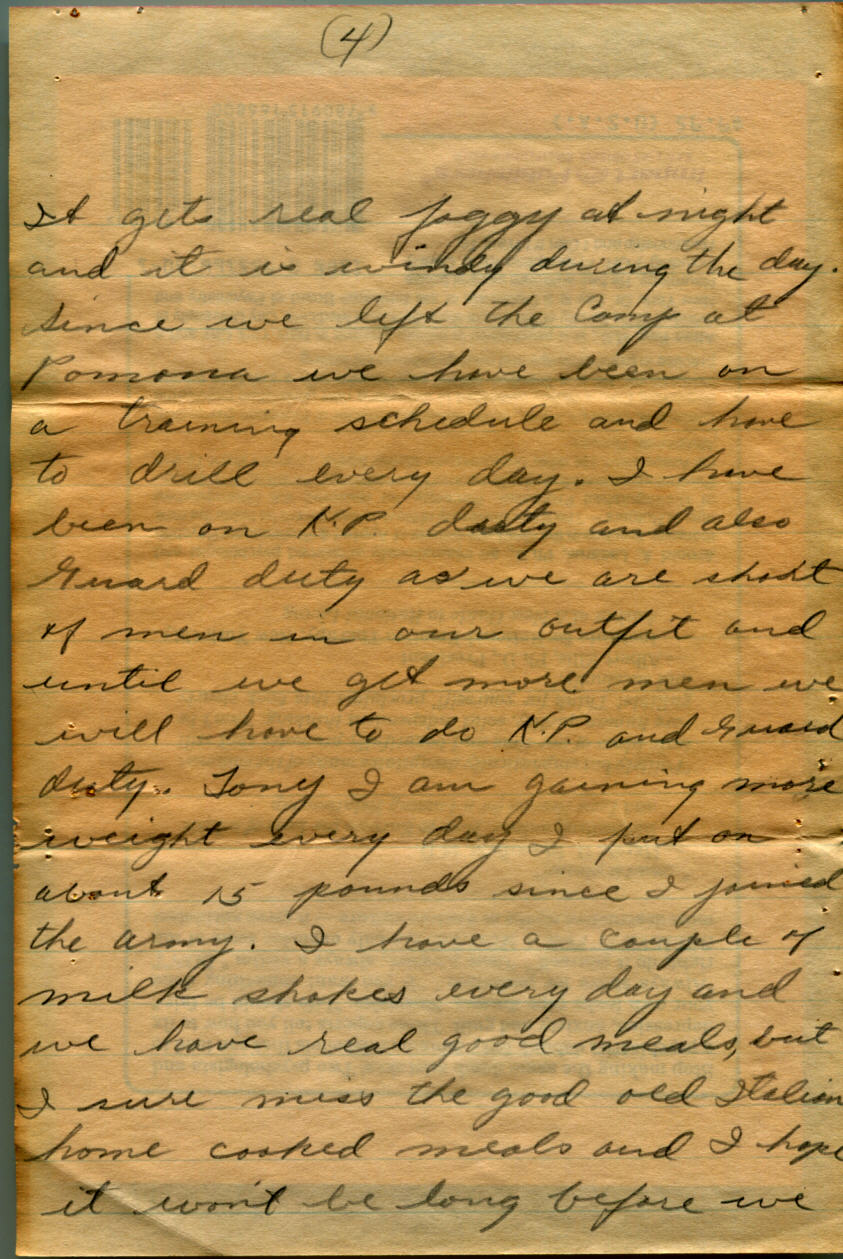 (4)
It gets real foggy at night
and it is windy during the day.
Since we left the Camp at
Pomona we have been on
a training schedule and have
to drill every day. I have
been on K.P. duty and also
Guard duty as we are short
of men in our outfit and
until we get more men we
will have to do K.P. and Guard
duty. Tony I am gaining more
weight every day I put on
about 15 pounds since I joined
the army. I have a couple of
milk shakes every day and
we have real good meals, but
I sure miss the good old Italian
home cooked meals and I hope
it won't be long before we